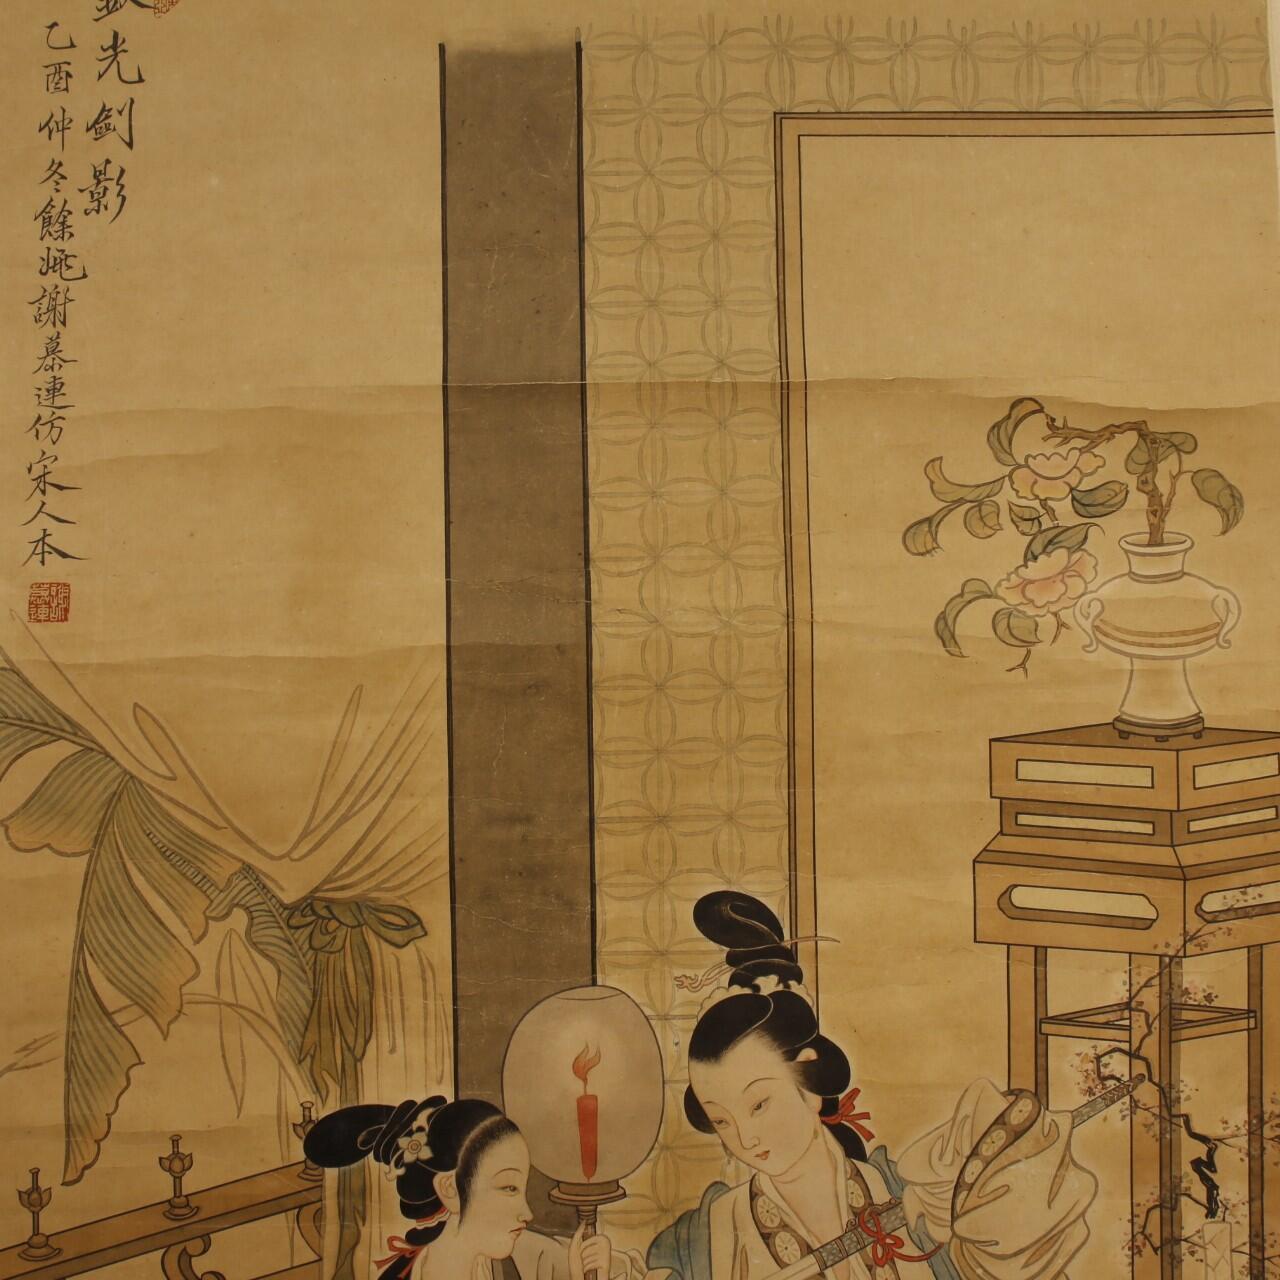 光劍影
乙酉仲冬餘姚謝慕連仿宋人本